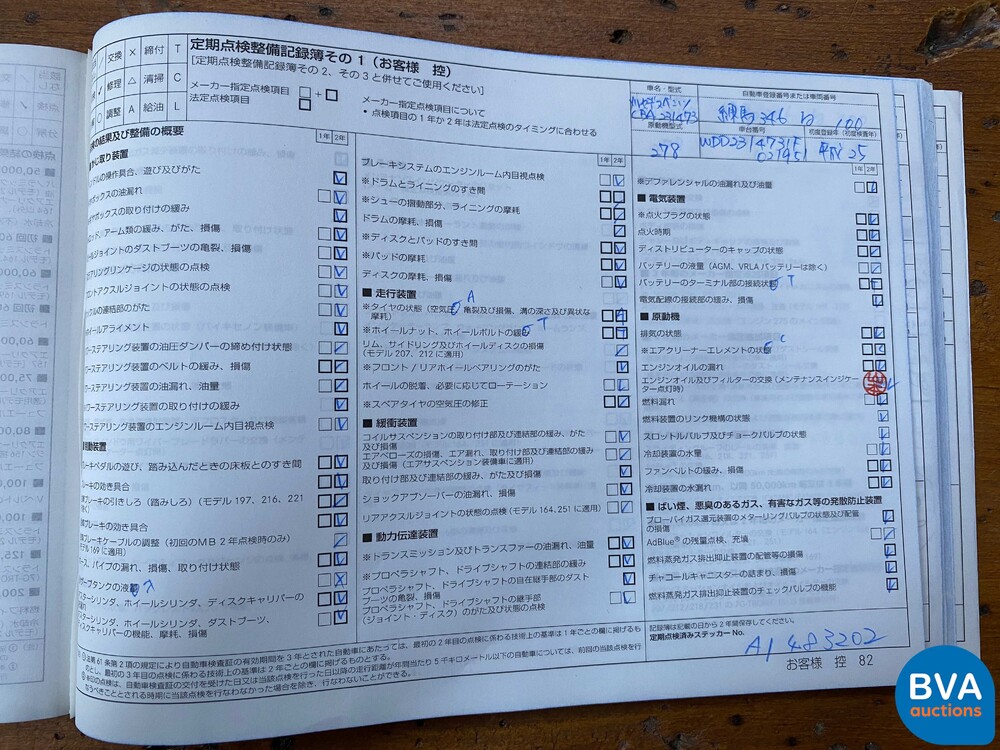 交換 X 締付 T
修理 △ 清掃 C
調整 A 給油 L
定期点検整備記録簿その1(お客様 控)
[定期点検整備記録簿その2、その3と併せてご使用ください]
メーカー指定点検項目 □+□
法定点検項目 □
メーカー指定点検項目について
・点検項目の1年か2年は法定点検のタイミングに合わせる
車名・型式
CBA 231473
原動機型式
278
自動車登録番号または車両番号
練馬 346
100
車台番号
WDD2314731F
021951
初度登録年(初度検査年)
平成25
の結果及び整備の概要
1年 2年
かじ取り装置
ハンドルの操作具合、遊び及びがた
ギヤボックスの油漏れ
ギヤボックスの取り付けの緩み
ロッド、アーム類の緩み、がた、損傷
ボールジョイントのダストブーツの亀裂、損傷
ステアリングリンケージの状態の点検
フロントアクスルジョイントの状態の点検
ナックルの連結部のがた
ホイールアライメント
パワーステアリング装置の油圧ダンパーの締め付け状態
パワーステアリング装置のベルトの緩み、損傷
パワーステアリング装置の油漏れ、油量
パワーステアリング装置の取り付けの緩み
パワーステアリング装置のエンジンルーム内目視点検
制動装置
ブレーキペダルの遊び、踏み込んだときの床板とのすき間
ブレーキの効き具合
ブレーキの引きしろ(踏みしろ)(モデル 197、216、221
除く)
ブレーキの効き具合
ブレーキケーブルの調整(初回のMB2年点検時のみ)
モデル 169 に適用)
ホース、パイプの漏れ、損傷、取り付け状態
リザーブタンクの液量
マスターシリンダ、ホイールシリンダ、ディスクキャリパーの
液漏れ
マスターシリンダ、ホイールシリンダ、ダストブーツ、
ディスクキャリパーの機能、摩耗、損傷
1年 2年
ブレーキシステムのエンジンルーム内目視点検
※ドラムとライニングのすき間
※シューの摺動部分、ライニングの摩耗
ドラムの摩耗、損傷
※ディスクとパッドのすき間
※パッドの摩耗
ディスクの摩耗、損傷
■ 走行装置
※タイヤの状態(空気圧、亀裂及び損傷、溝の深さ及び異状な
摩耗) A
※ホイールナット、ホイールボルトの緩み T
リム、サイドリング及びホイールディスクの損傷
(モデル 207、212 に適用)
※フロント / リアホイールベアリングのがた
ホイールの脱着、必要に応じてローテーション
※スペアタイヤの空気圧の修正
■ 緩衝装置
コイルサスペンションの取り付け部及び連結部の緩み、がた
及び損傷
エアベローズの損傷、エア漏れ、取り付け部及び連結部の緩み
及び損傷(エアサスペンション装備車に適用)
取り付け部及び連結部の緩み、がた及び損傷
ショックアブソーバーの油漏れ、損傷
リアアクスルジョイントの状態の点検(モデル 164.251 に適用)
■ 動力伝達装置
※トランスミッション及びトランスファーの油漏れ、油量
※プロペラシャフト、ドライブシャフトの連結部の緩み
プロペラシャフト、ドライブシャフトの自在継手部のダスト
ブーツの亀裂、損傷
プロペラシャフト、ドライブシャフトの継手部
(ジョイント・ディスク)のがた及び状態の点検
1年 2年
※デファレンシャルの油漏れ及び油量
■ 電気装置
※点火プラグの状態
点火時期
ディストリビューターのキャップの状態
バッテリーの液量(AGM、VRLA バッテリーは除く)
バッテリーのターミナル部の接続状態 T
電気配線の接続部の緩み、損傷
■ 原動機
排気の状態
※エアクリーナーエレメントの状態 C
エンジンオイルの漏れ
エンジンオイル及びフィルターの交換(メンテナンスインジケー
ター点灯時)
燃料漏れ
燃料装置のリンク機構の状態
スロットルバルブ及びチョークバルブの状態
冷却装置の水量
ファンベルトの緩み、損傷
冷却装置の水漏れ
■ ばい煙、悪臭のあるガス、有害なガス等の発散防止装置
ブローバイガス還元装置のメターリングバルブの状態及び配管
の損傷
AdBlue®の残量点検、充填
燃料蒸発ガス排出抑止装置の配管等の損傷
チャコールキャニスターの詰まり、損傷
燃料蒸発ガス排出抑止装置のチェックバルブの機能
記録簿は記載の日から2年間保存してください。
定期点検済みステッカー No.
A1 483202
お客様 控 82
BVA
auctions